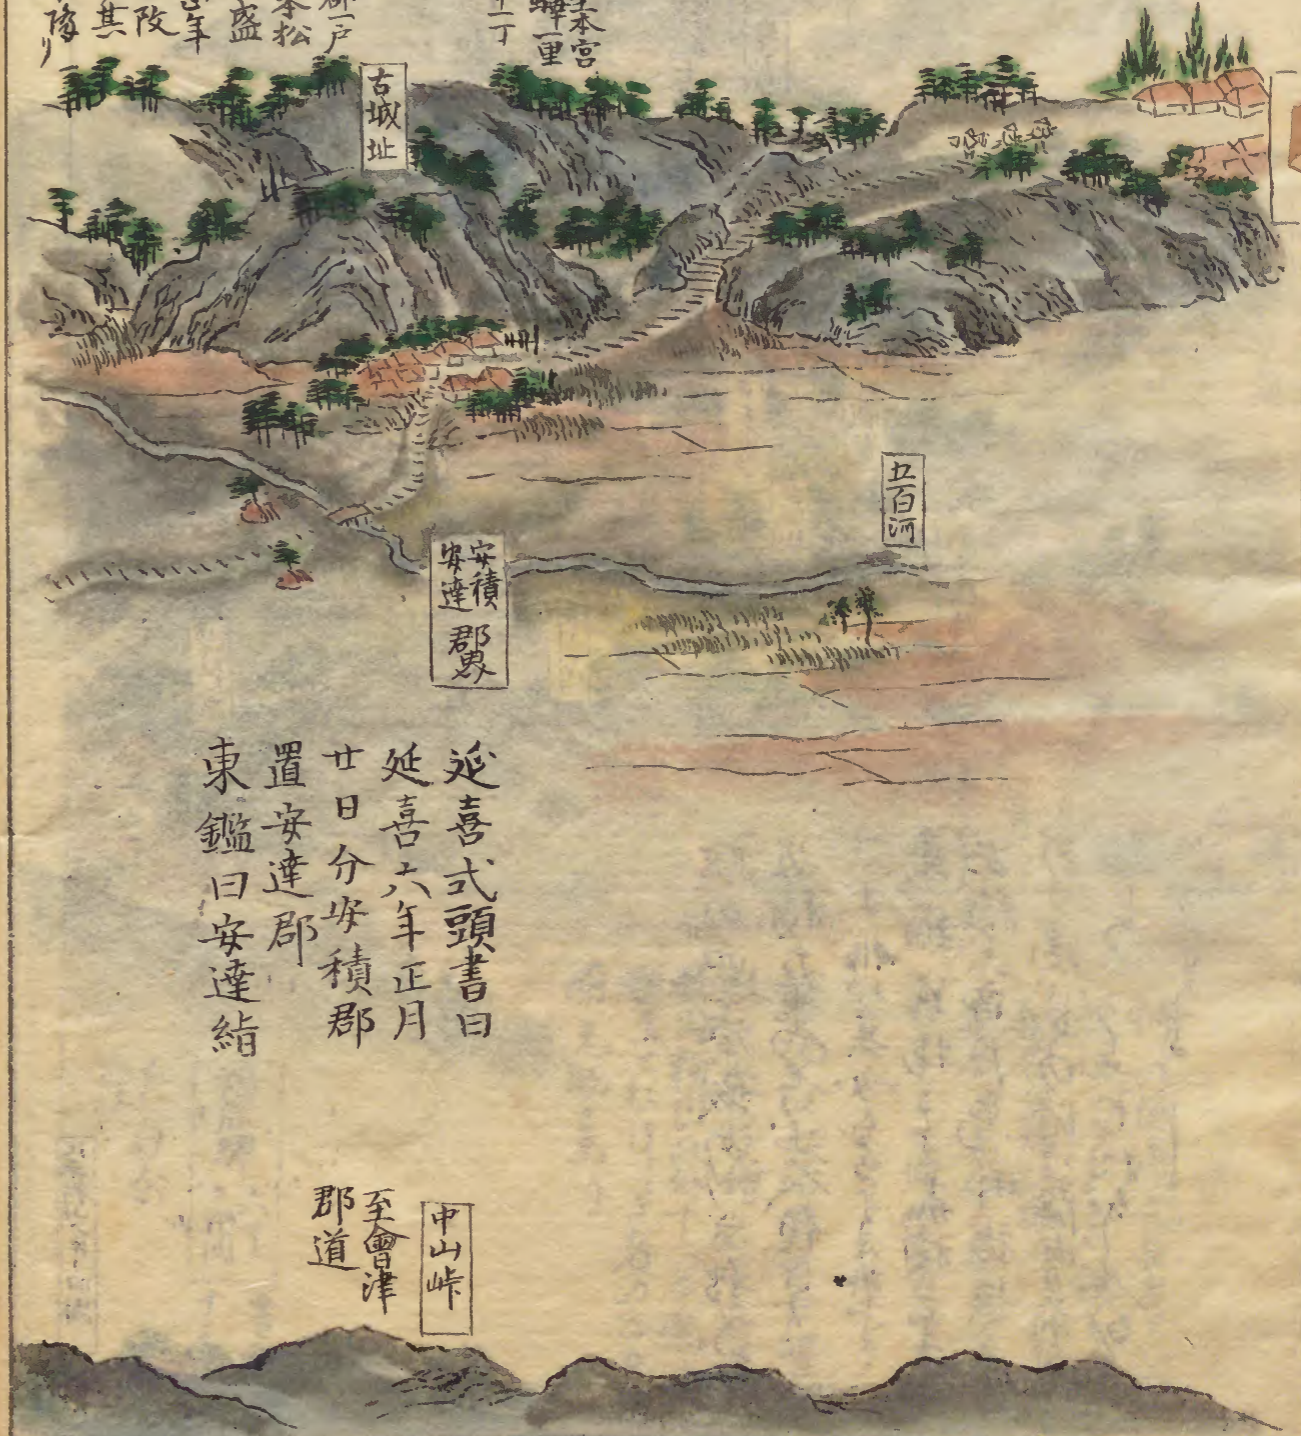 至本宮
一里
十一丁
郡一戸
本松
盛
年
攻
其
隆り
古城址
五百河
安積
安達
郡界
延喜式頭書曰
延喜六年正月
廿日分安積郡
置安達郡
東鑑曰安達絹
中山峠
至會津
郡道